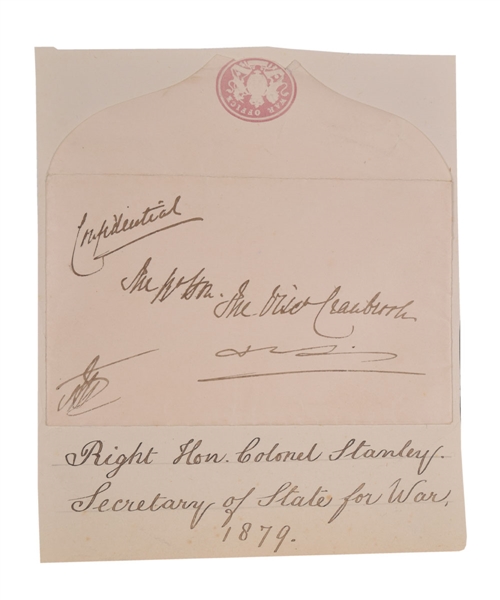 WAR OFFICE
Confidential
The Rt Hon. The Visct Cranbrook
Right Hon. Colonel Stanley.
Secretary of State for War.
1879.